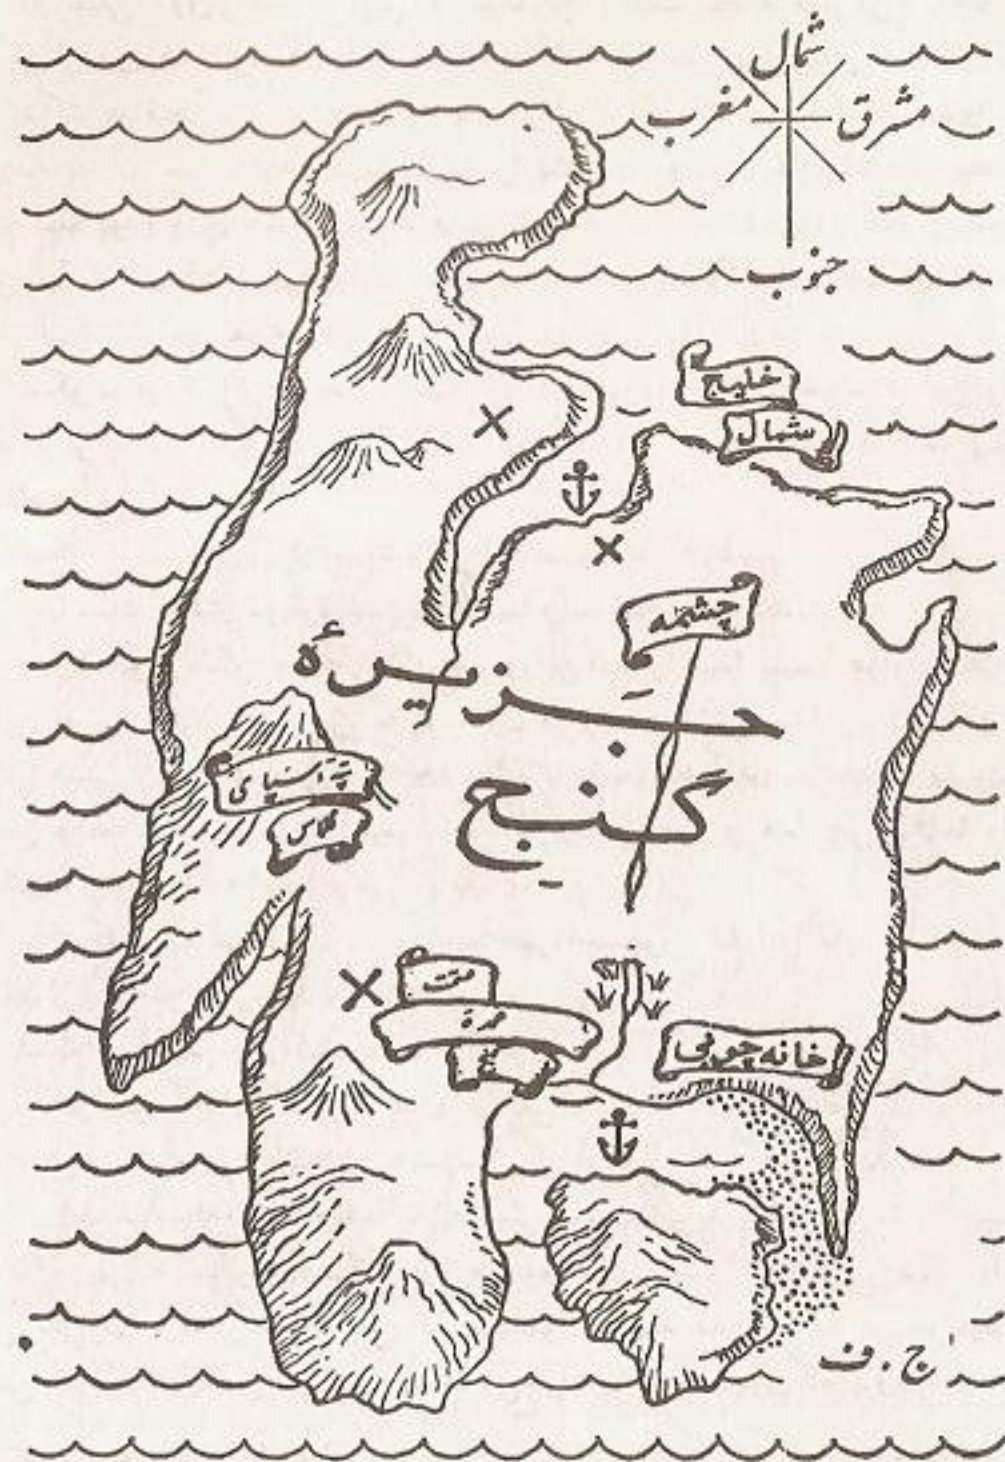 شمال
مشرق
مغرب
جنوب
خلیج
شمال
چشمه
جزیرهٔ
گنج
تپه اسپای
گلاس
عمدة
خانه چوبی
ج . ف